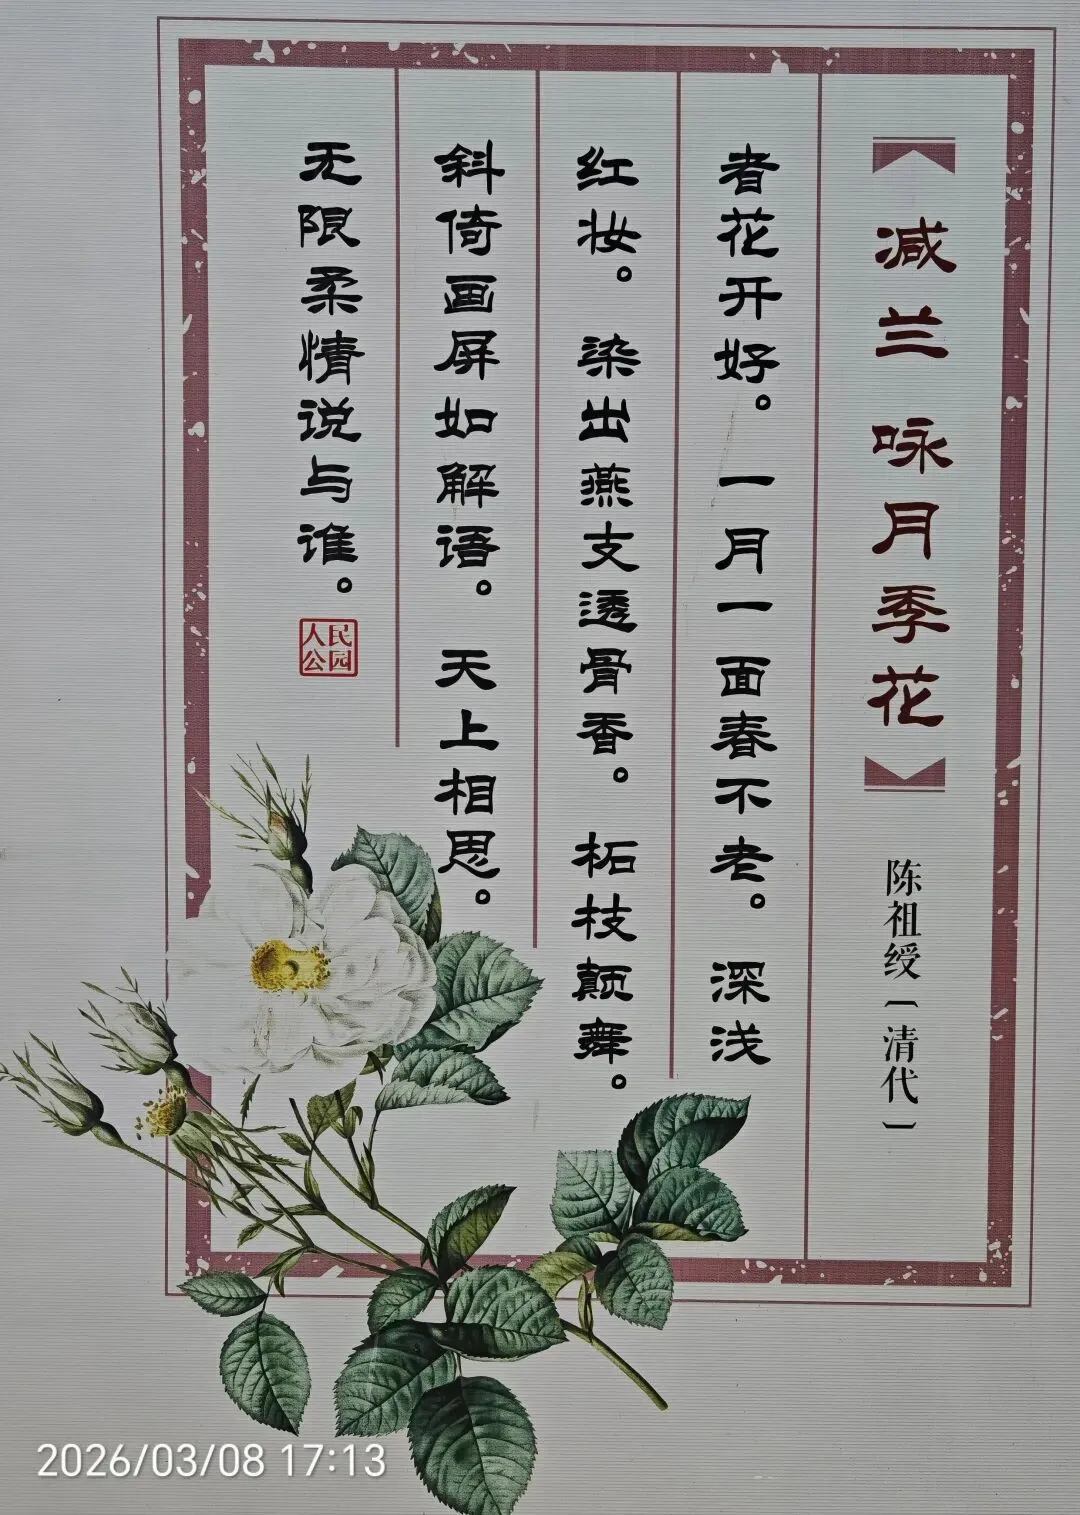 《减兰 咏月季花》 陈祖绶〔清代〕
者花开好。一月一面春不老。深浅
红妆。染出燕支透骨香。柘枝颠舞。
斜倚画屏如解语。天上相思。
无限柔情说与谁。
人民公园
2026/03/08 17:13